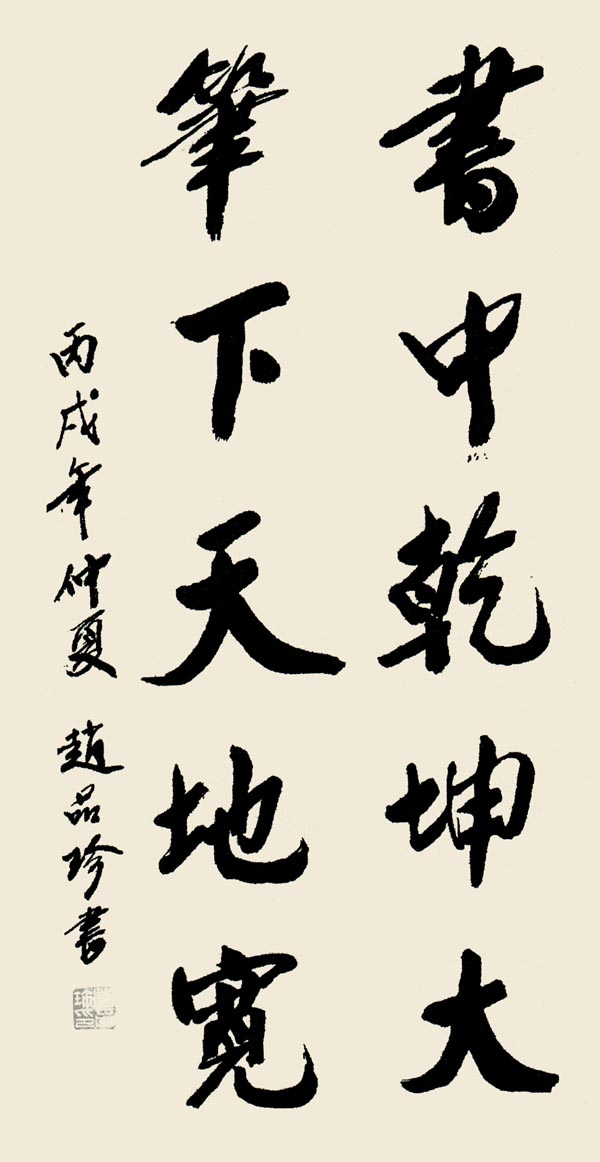 書中乾坤大
筆下天地寬
丙戌年仲夏 趙品珍書